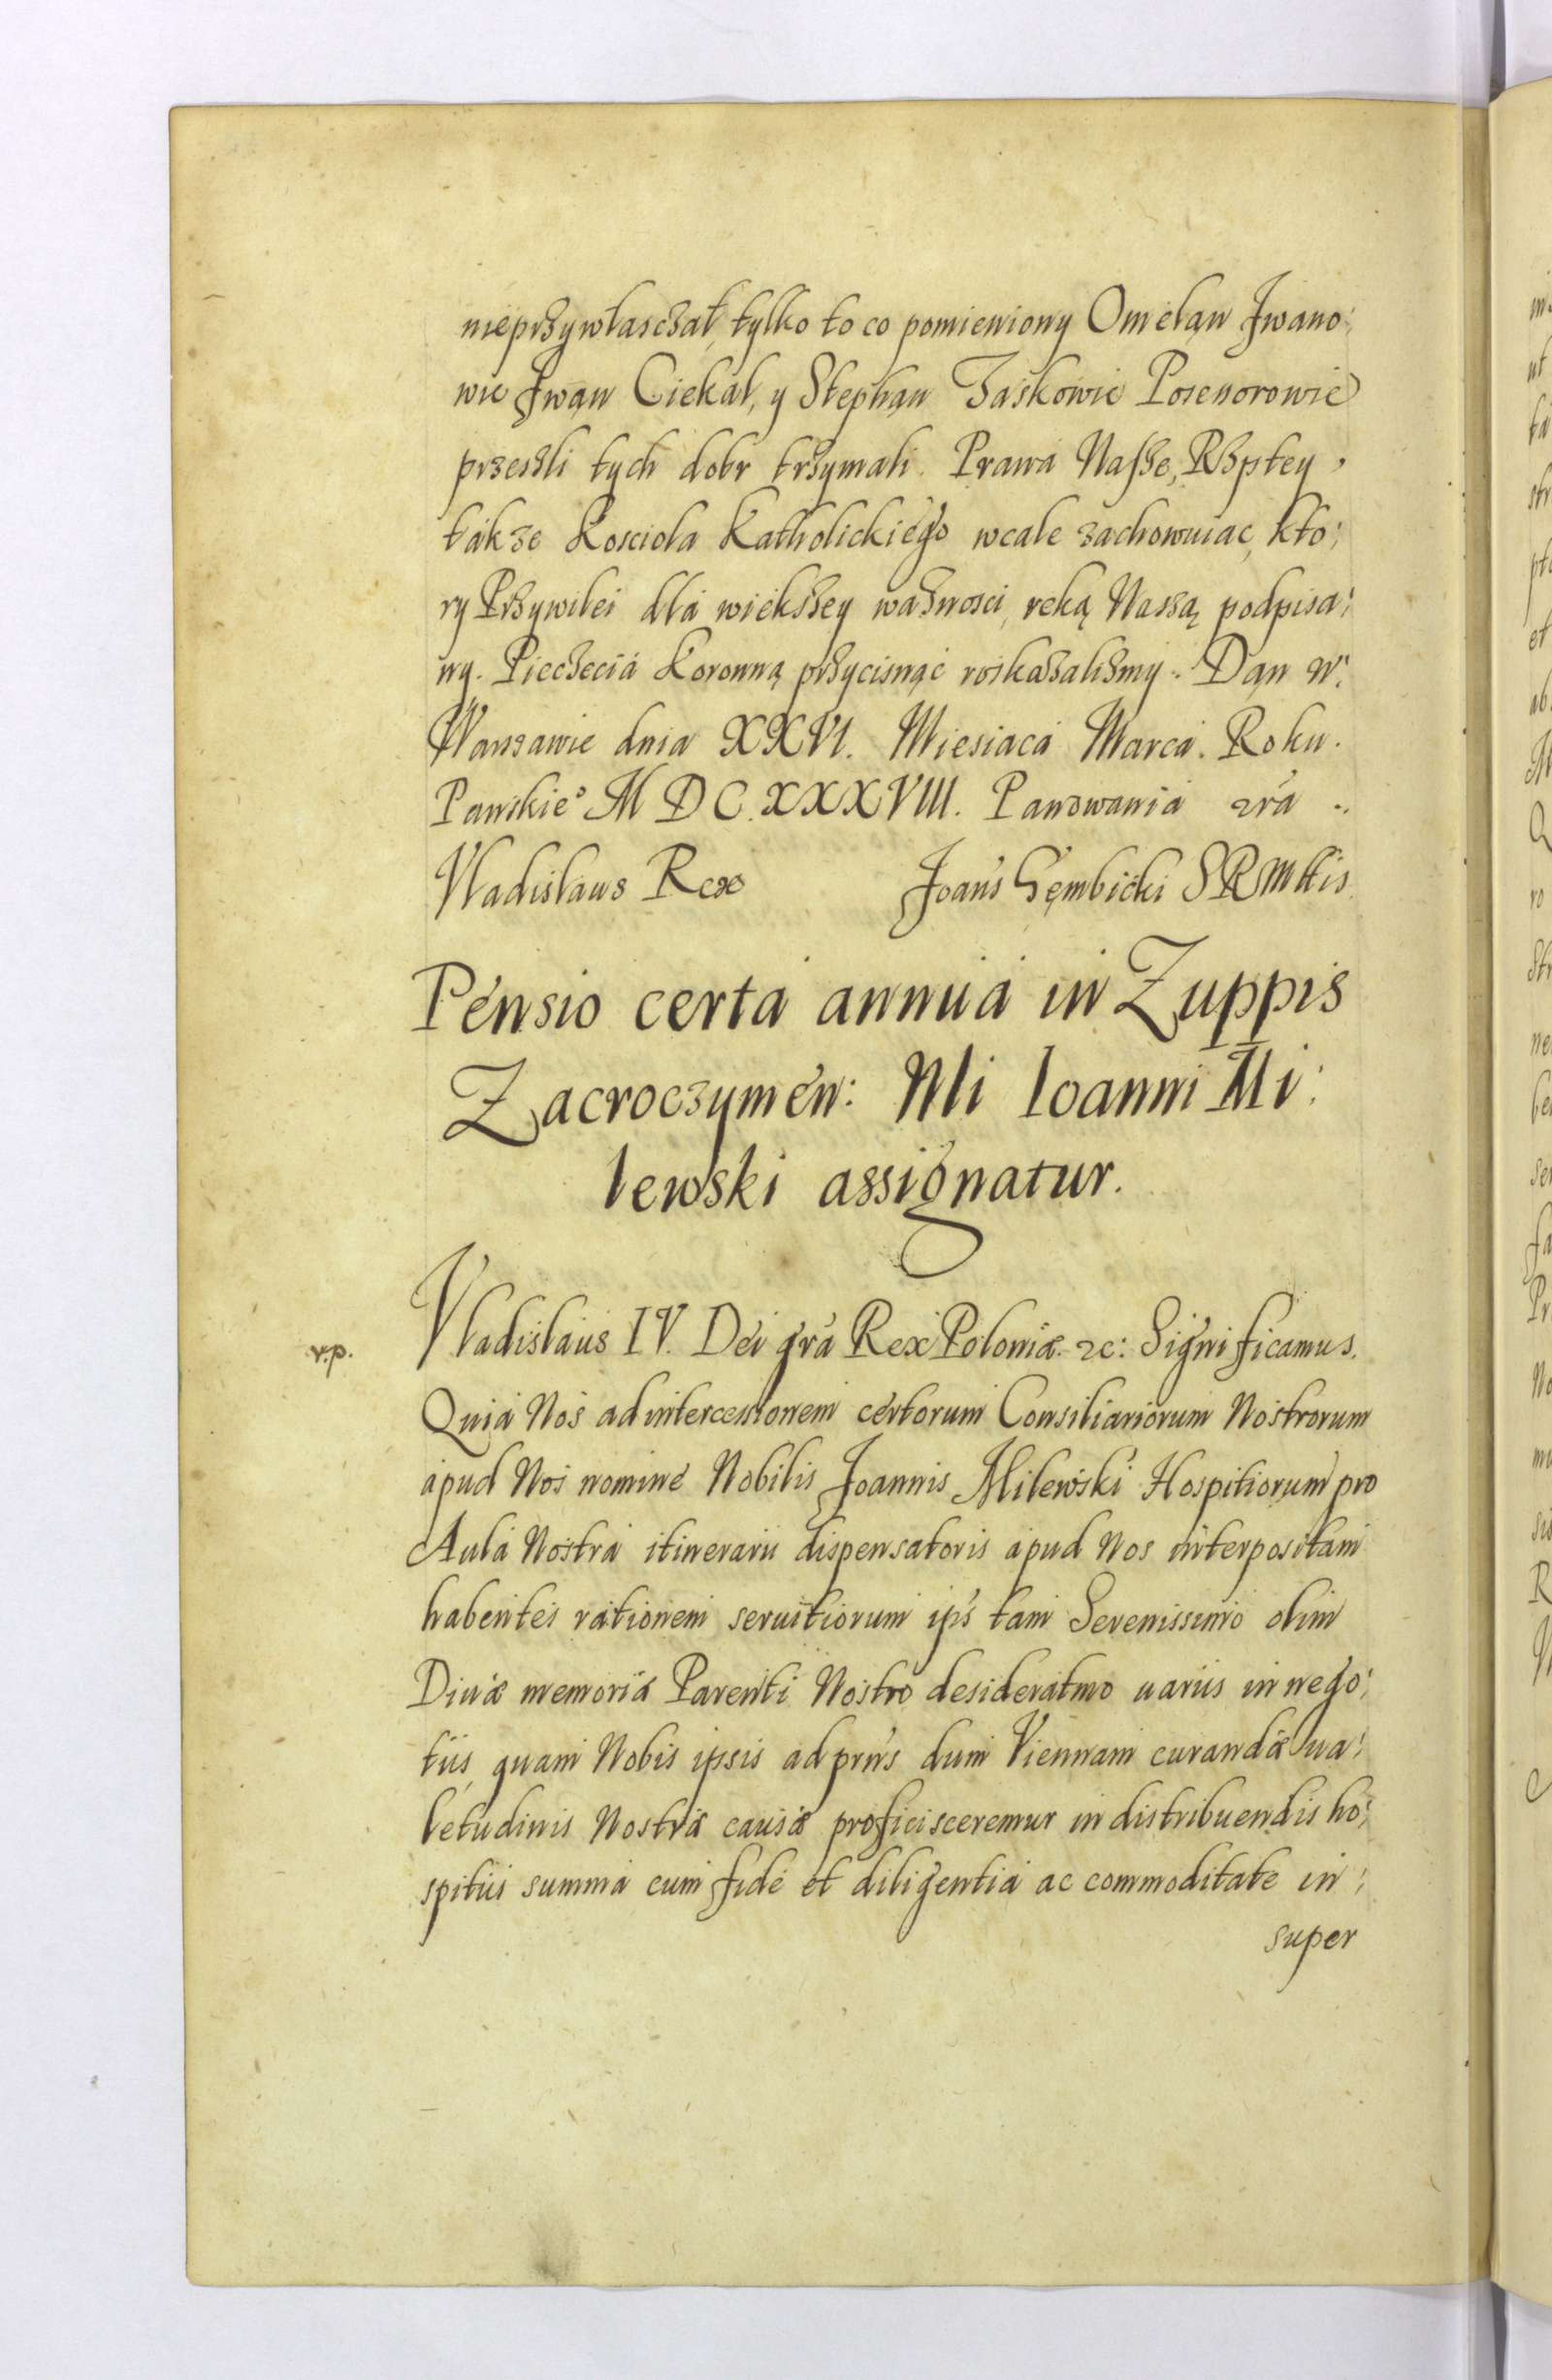 nieprzywłasczał, tylko to co pomieniony Omelan Jwano:
wie Jwan Ciekal, y Stephan Jaskowie Posenorowie
przeszli tych dobr trzymali. Prawa Nasze, Rzptey,
takze Kosciola Katholickiego wcale zachowuiac, kto:
ry Przywilei dla wiekszey waznosci, reką Naszą podpisa:
ny. Pieczecia Koronną przycisnąć roskazalismy. Dan w.
Warszawie dnia XXVI. Miesiaca Marca. Roku.
Panskie° M D C. XXXVIII. Panowania nra ..
Vladislaus Rex Joans Gembicki SRMttis
Pensio certa annua in Zuppis
Zacroczymen: Nli Ioanni Mi:
lewski assignatur.
v.p.
Vladislaus IV. Dei gra Rex Poloniæ. 2c: Significamus.
Quia Nos ad intercessionem certorum Consiliariorum Nostrorum
apud Nos nomine Nobilis Joannis Milewski Hospitiorum pro
Aula Nostra itinerarii dispensatoris apud Nos interpositam
habentes rationem seruitiorum ips tam Serenissimo olim
Diuæ memoriæ Parenti Nostro desideratmo uariis in nego:
tiis, quam Nobis ipsis ad prns dum Viennam curandæ ua:
letudinis Nostræ causa proficisceremur in distribuendis ho:
spitiis summa cum fide et diligentia ac commoditate in:
super